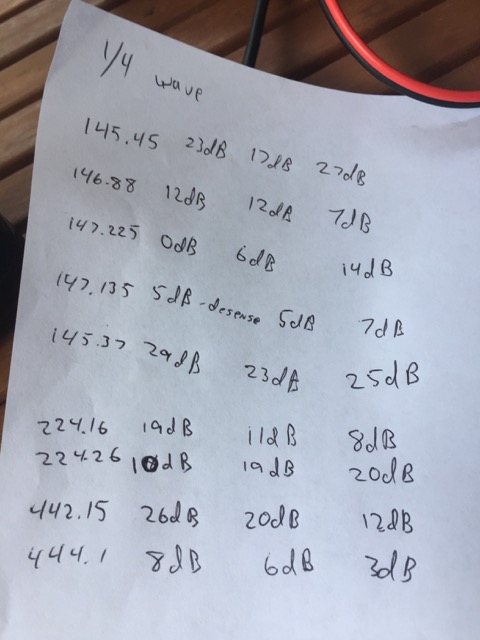 1/4 wave
145.45 23dB 17dB 27dB
146.88 12dB 12dB 7dB
147.225 0dB 6dB 14dB
147.135 5dB-desense 5dB 7dB
145.37 29dB 23dB 25dB
224.16 19dB 11dB 8dB
224.26 10dB 19dB 20dB
442.15 26dB 20dB 12dB
444.1 8dB 6dB 3dB